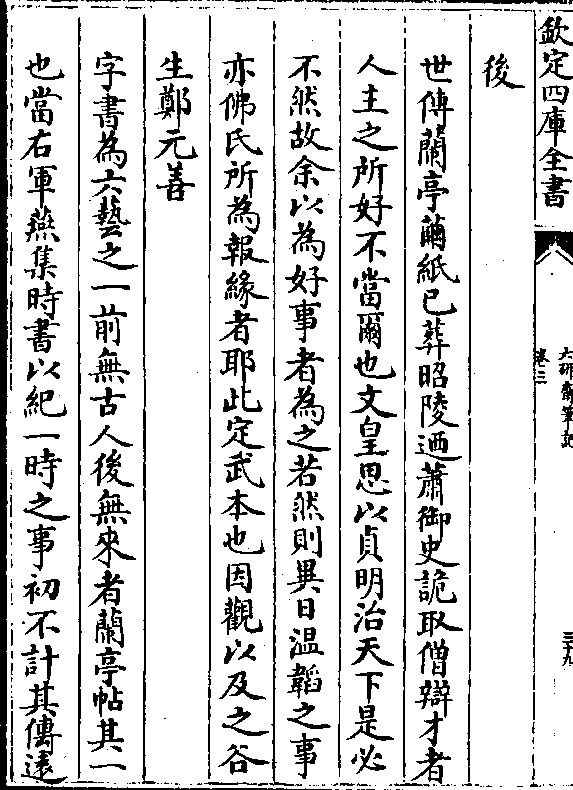 欽定四庫全書
六研齋筆記
卷三
三十九
後
世傳蘭亭繭紙已葬昭陵迺蕭御史詭取僧辯才者
人主之所好不當爾也文皇思以貞明治天下是必
不然故余以為好事者為之若然則異日溫韜之事
亦佛氏所為報緣者耶此定武本也因觀以及之谷
生鄭元善
字書為六藝之一前無古人後無來者蘭亭帖其一
也當右軍燕集時書以紀一時之事初不計其傳遠